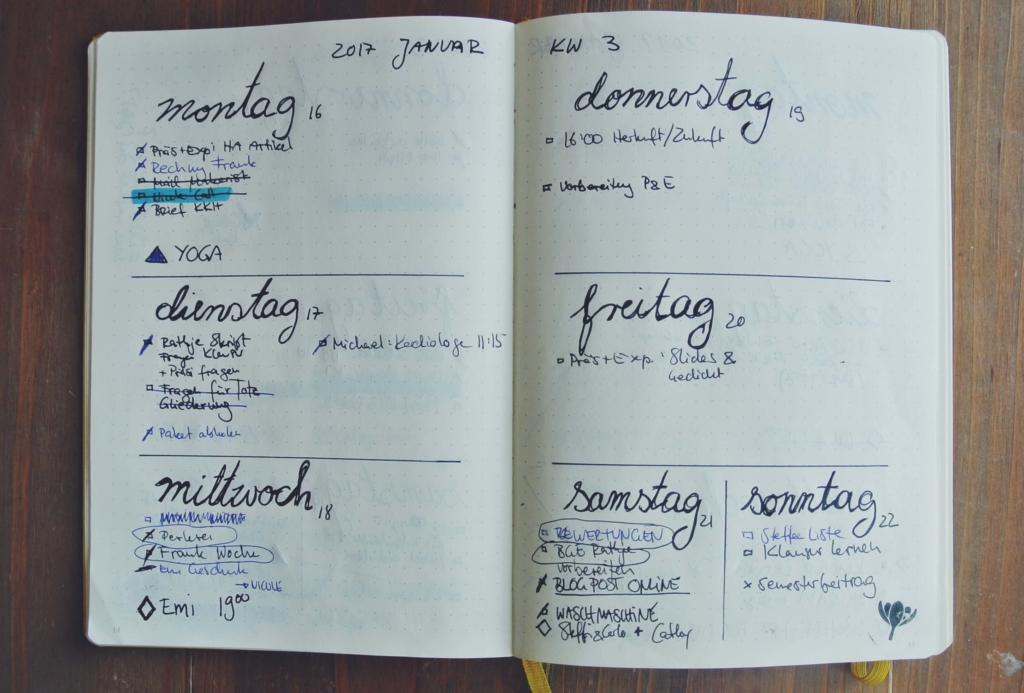 2017 JANUAR
montag 16
Präs+Exp: HA Artikel
Rechnung Frank
Brief KKH
YOGA
dienstag 17
Rathje Skript
Fragen Klausur
+ Präsi fragen
Fragen für Tote
Gliederung
Paket abholen
Michael: Kardiologe 11:15
mittwoch 18
Frank Woche
Emi Geschenk
→ NICOLE
Emi 19 00
KW 3
donnerstag 19
16:00 Herkunft/Zukunft
Vorbereitung P&E
freitag 20
Präs+Exp.: Slides &
Gedicht
samstag 21
BEWERTUNGEN
BGE Rathje
vorbereiten
BLOGPOST ONLINE
WASCHMASCHINE
Steffi & Carlo + Cathy
sonntag 22
Steffen Liste
Klausur lernen
x Semesterbeitrag